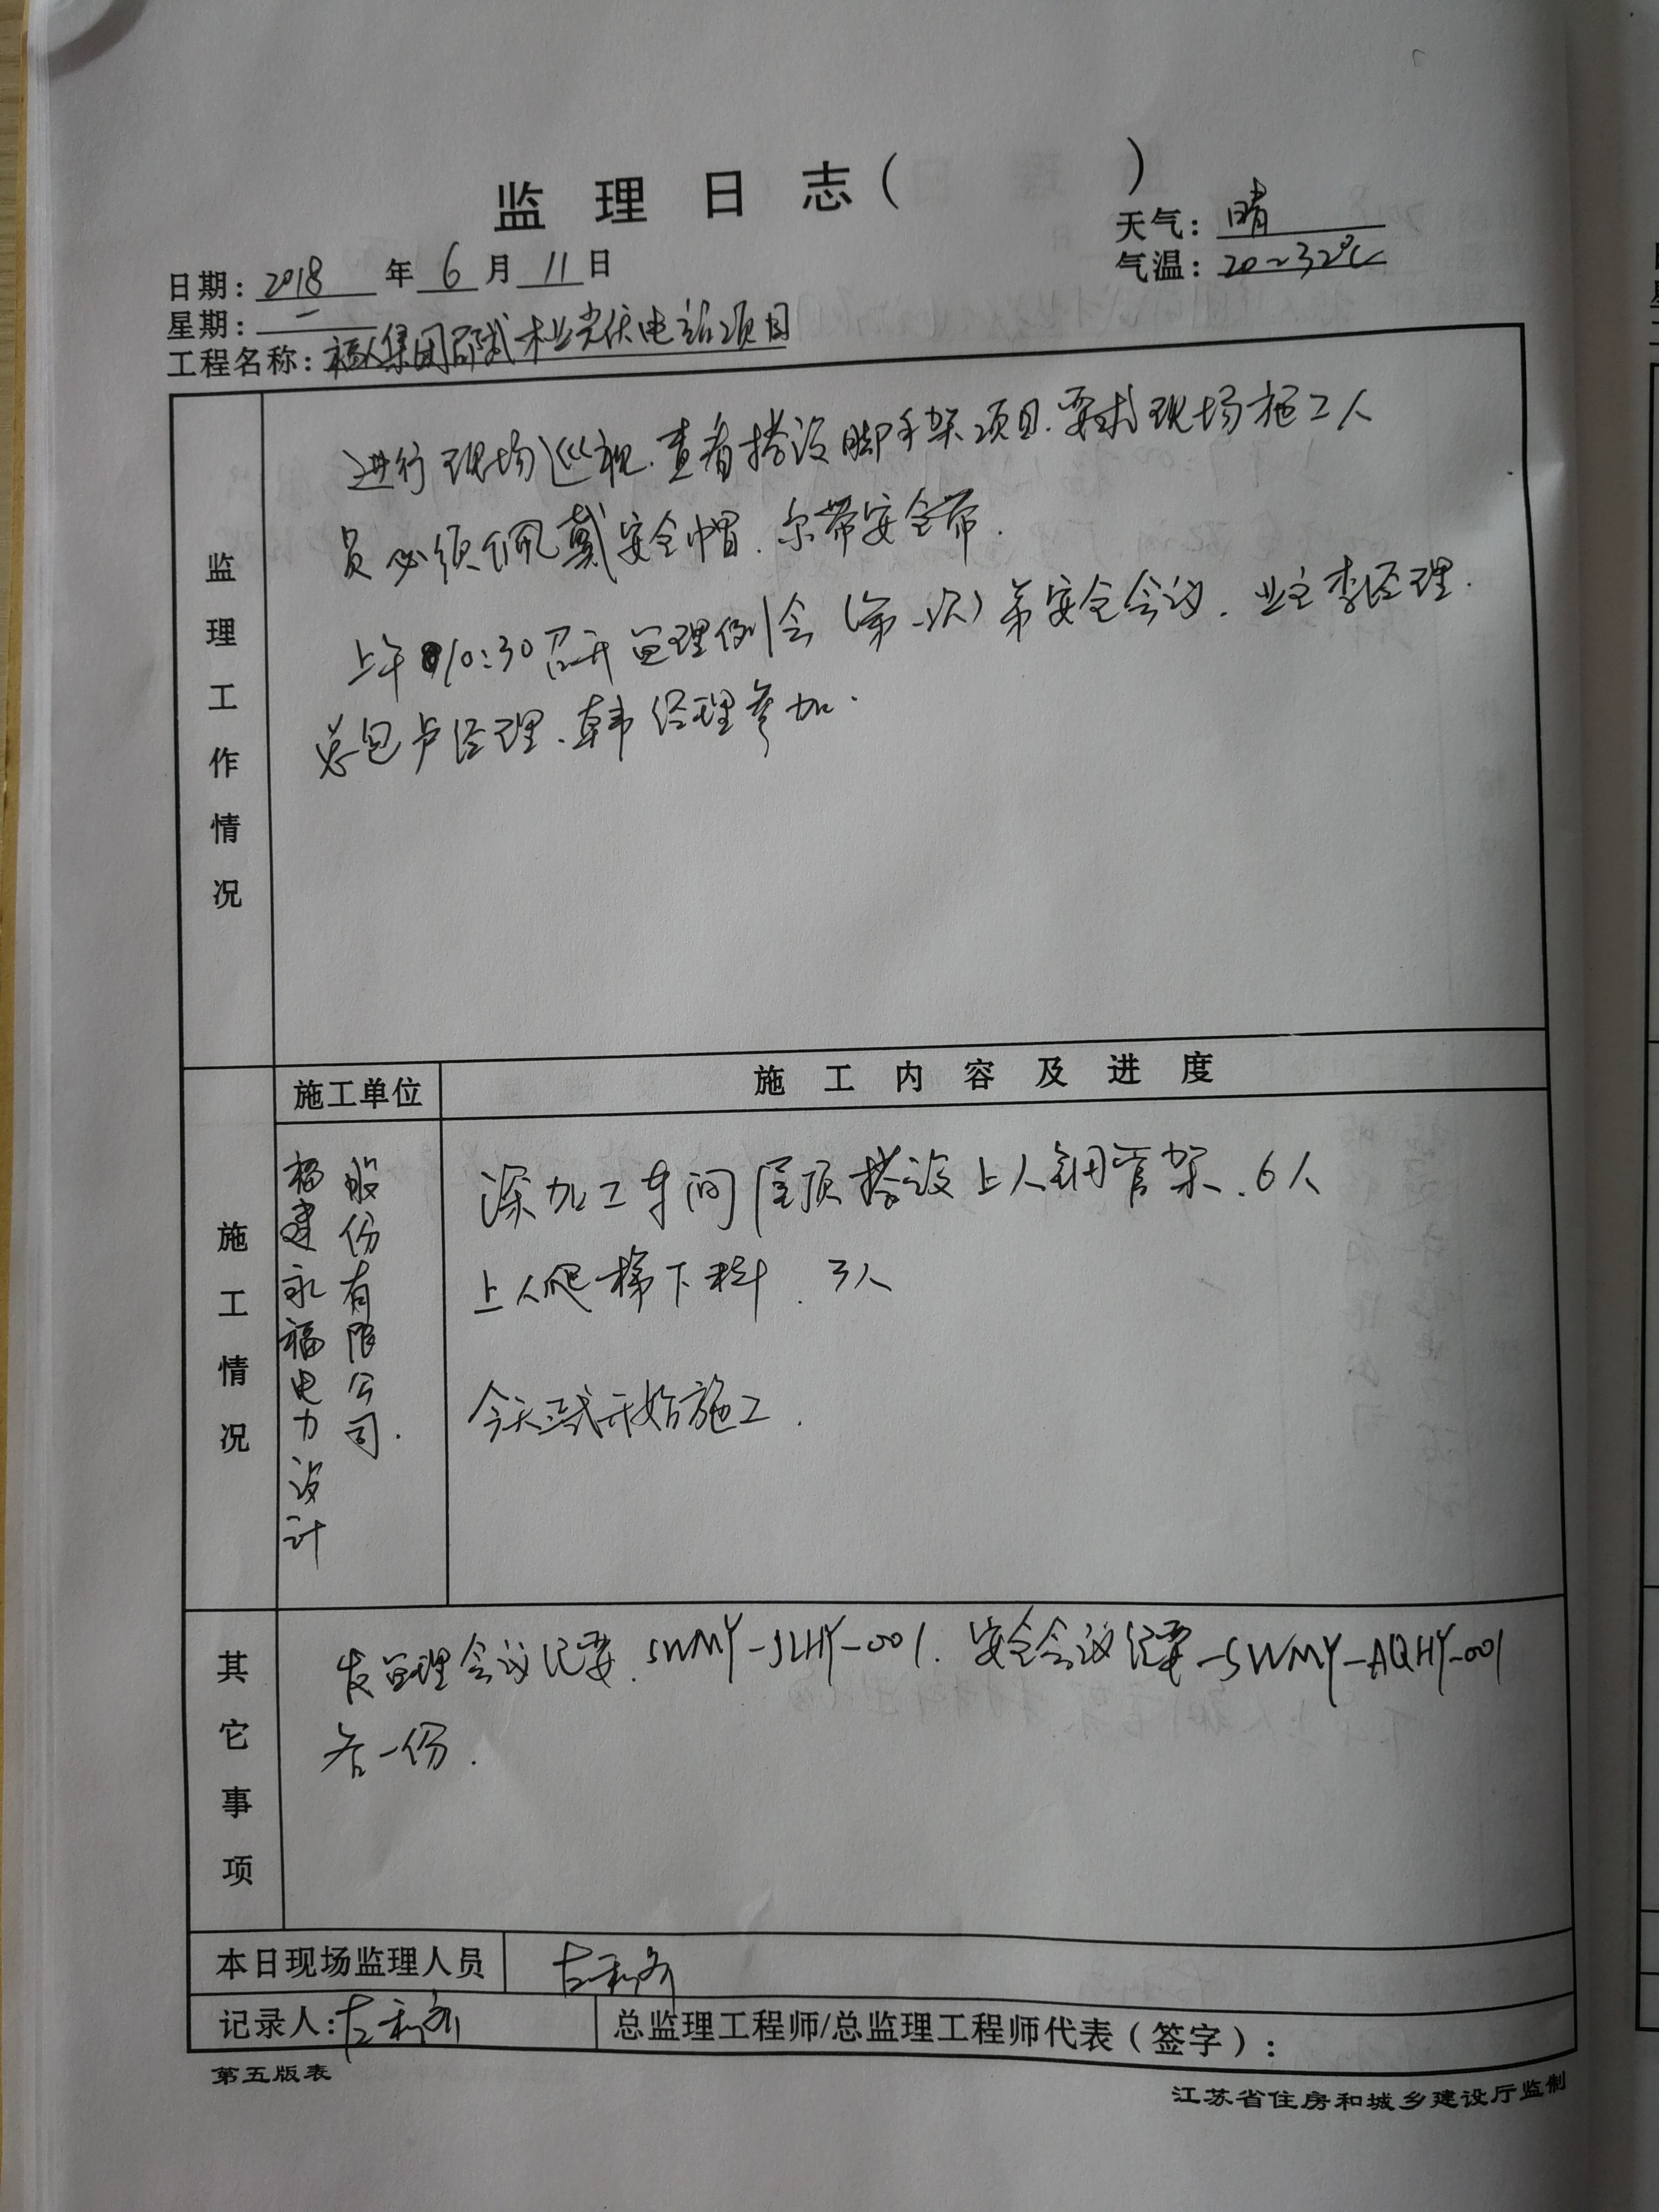 监理日志（ ）
天气：晴
日期：2018年6月11日
气温：20～32℃
星期：一
工程名称：福人集团邵武木业光伏电站项目
监理工作情况
进行现场巡视.查看搭设脚手架项目.要求现场施工人
员必须佩戴安全帽.系带安全带.
上午10:30召开监理例会（第一次）第安全会议.业主李经理.
总包卢经理.韩经理参加.
施工单位
施工内容及进度
施工情况
福建永福电力设计
股份有限公司.
深加工车间屋顶搭设上人钢管架.6人
上人爬梯下料.3人
今天正式开始施工.
其它事项
发监理会议纪要.SWMY-JLHY-001.安全会议纪要-SWMY-AQHY-001
各一份.
本日现场监理人员
记录人：
总监理工程师/总监理工程师代表（签字）：
第五版表
江苏省住房和城乡建设厅监制